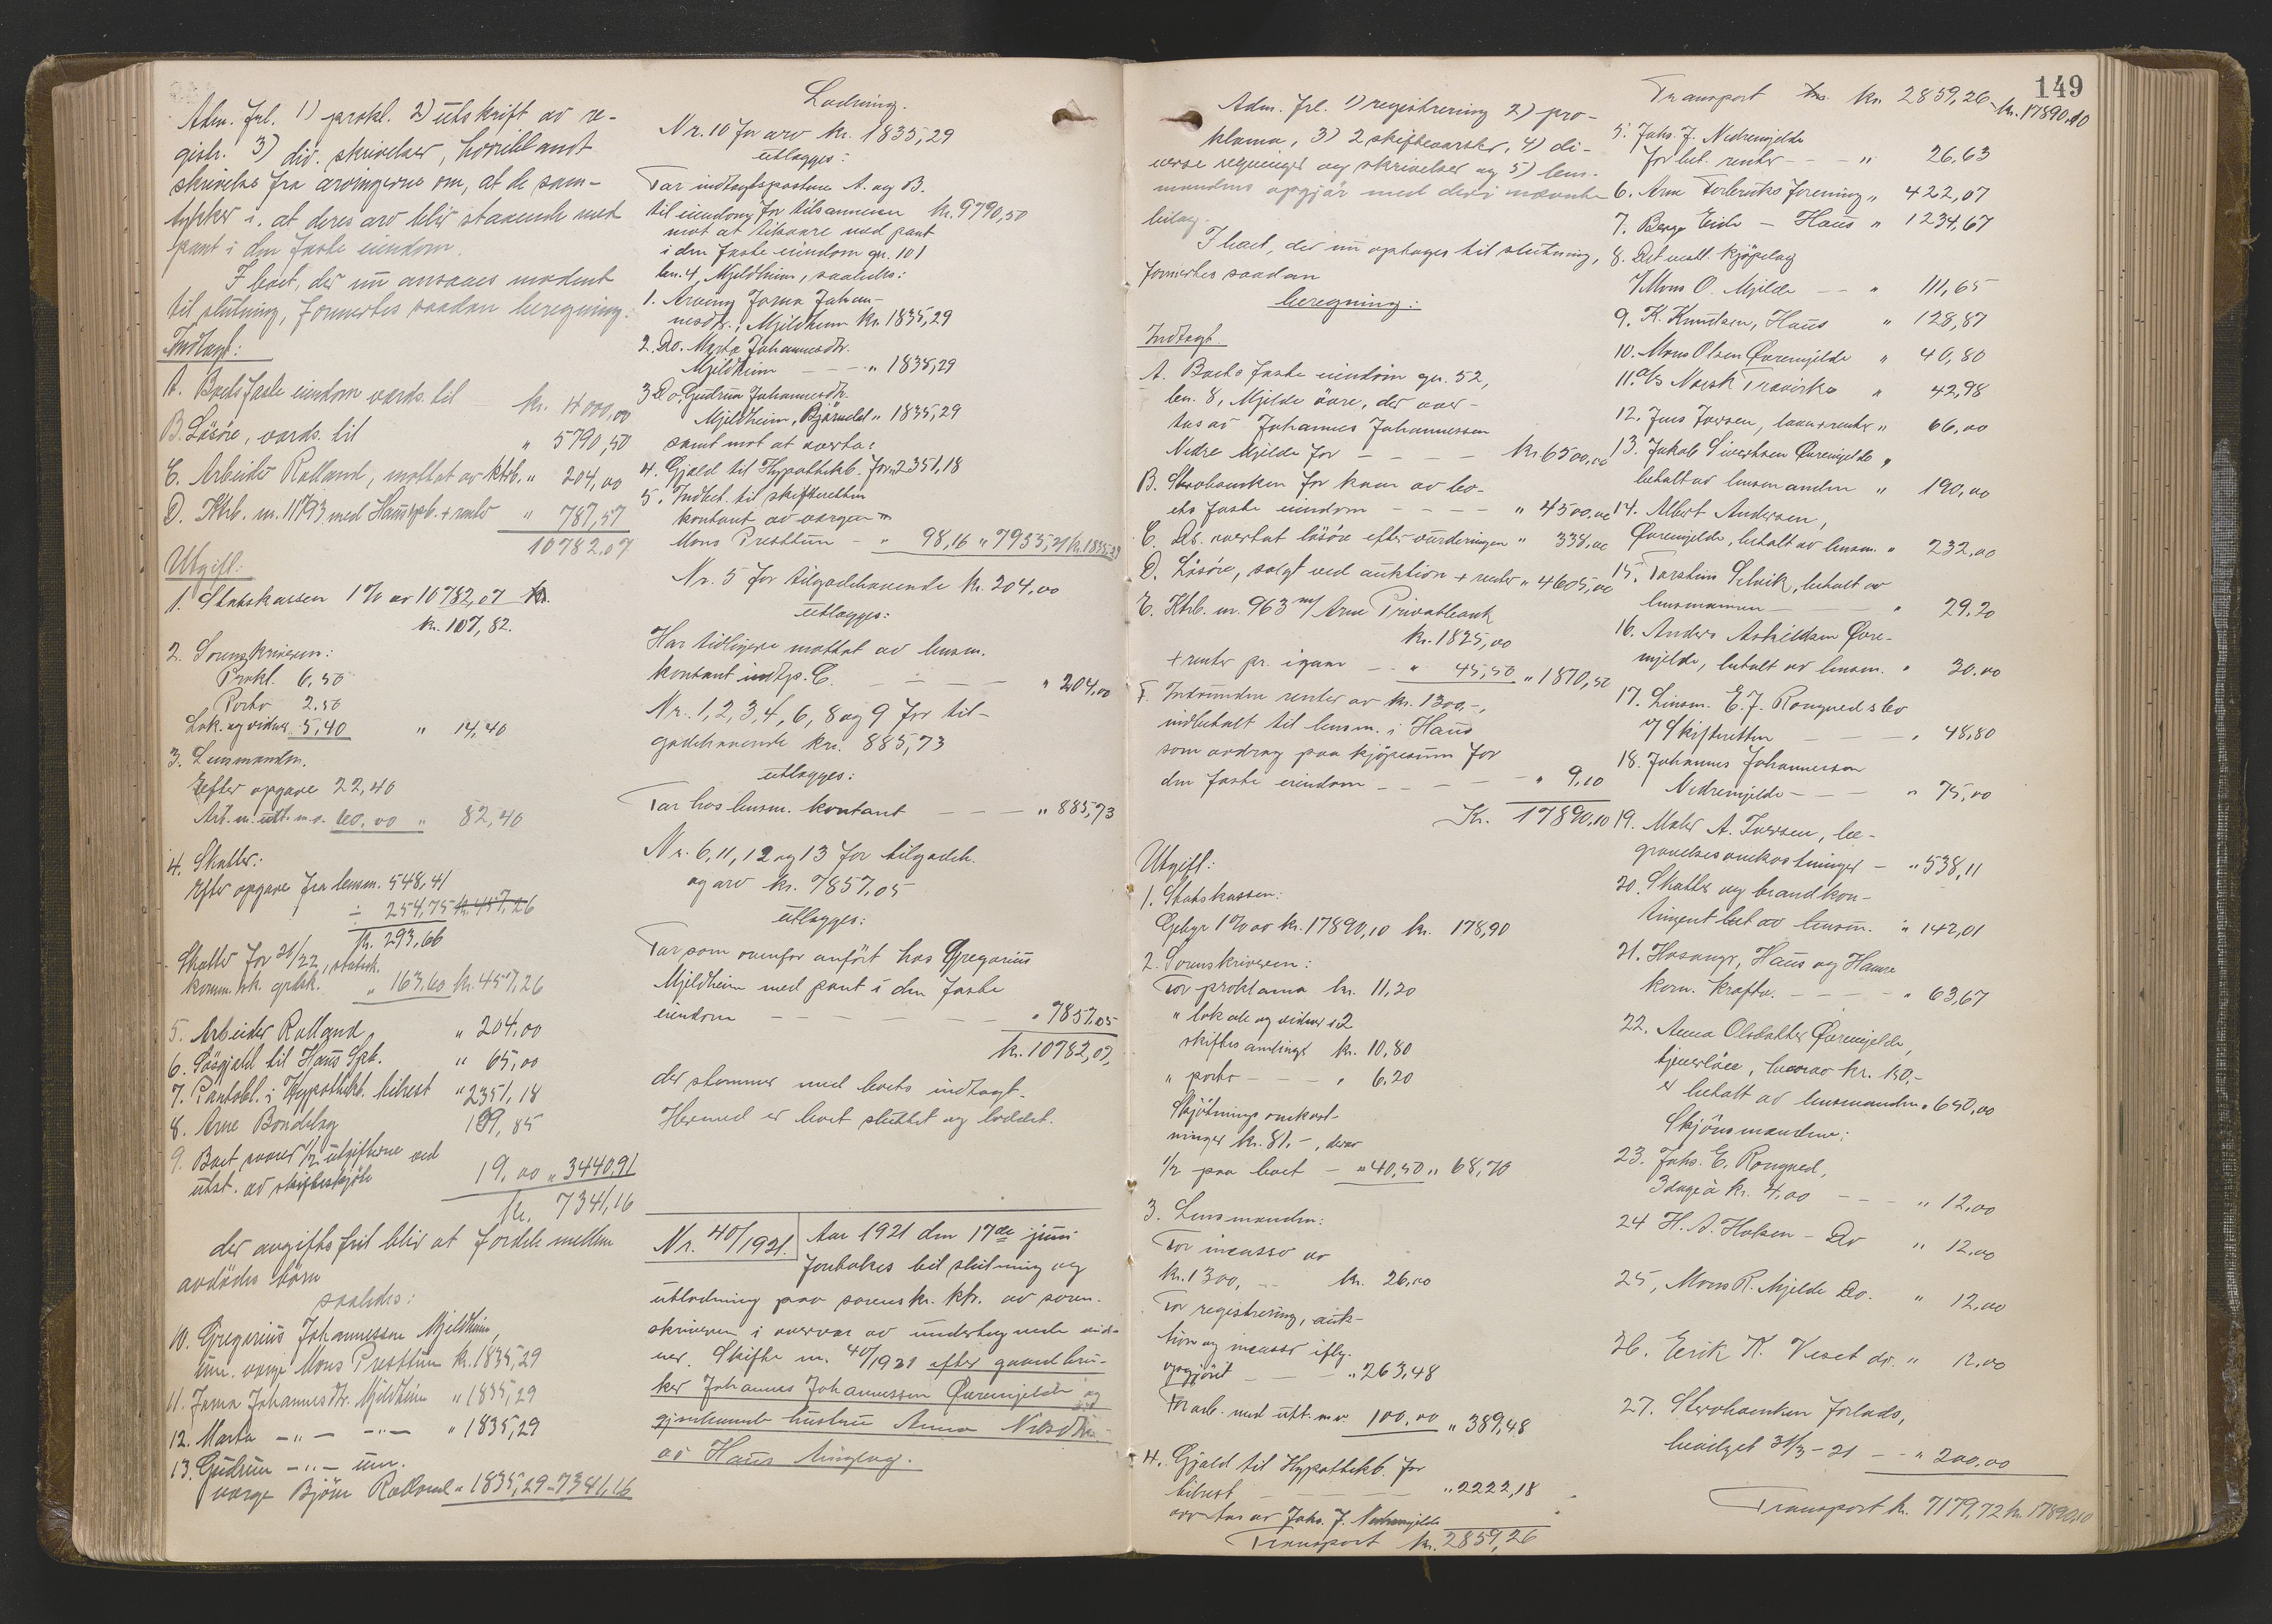 Adm. frl. 1) prokl. 2) utskrift av re-
gistr. 3) div. skrivelser, hvoriblandt
skrivelse fra arvingerne om, at de sam-
tykker i, at deres arv blir staaende mot
pant i den faste eiendom.
I boet, der nu ansaaes modent
til slutning, formertes saadan beregning:
Indtægt:
A. Boets faste eiendom værds. til kr. 4000,00
B. Lösöre, værds. til " 5790,50
C. Arbeider Rolland, mottat av ktrb. " 204,00
D. Ktrb. nr. 11793 med Haus spb. + renter " 787,57
10782,07
Utgift:
1. Statskassen 1% av 10782,07
kr. 107,82.
2. Sorenskriveren:
Prokl. 6,50
Porto 2.50
Lok. og vidner 5,40 " 14,40
3. Lensmanden.
Efter opgave 22,40
Arb. m. utl. m.v. 60,00 " 82,40
4. Skatter:
Efter opgave fra lensm. 548,41
÷ 254,75 kr. 457,26
kr. 293,66
Skatter for 21/22, statssk.
komm.sk. " 163.60 kr. 457,26
5. Arbeider Rolland " 204,00
6. Lösgjeld til Haus Spb. " 65,00
7. Pantobl. i Hypothekb. tilrest " 2351,18
8. Arne Bondelag 199,85
9. Boet svarer 1/2 utgifterne ved
utst. av skifteskjöte 19,00 " 3440,91
kr. 7341,16
der avgiftsfrit blir at fordele mellem
avdödes börn
saaledes:
10. Gregorius Johannessen Mjeldheim,
um. verge Mons Presttun kr. 1835,29
11. Jorna Johannesdtr. Mjeldheim " 1835,29
12. Marta —"— —"— " 1835,29
13. Gudrun —"— um.
verge Björn Rolland " 1835,29 - 7341,16
Lodning.
Nr. 10 for arv kr. 1835,29
utlægges:
Tar indtægtsposterne A. og B.
til eiendom for tilsammen kr. 9790,50
mot at tilsvare med pant
i den faste eiendom gr. 101
br. 4 Mjeldheim, saaledes:
1. Arving Jorna Johan-
nesdtr., Mjeldheim kr. 1835,29
2. Do. Marta Johannesdtr.
Mjeldheim — — " 1835,29
3 Do. Gudrun Johannesdtr.
Mjeldheim, " 1835,29
samt mot at overta:
4. Gjæld til Hypothekb. for " 2351,18
5. Indbet. til skifteretten
kontant av vergen
Mons Presttun - " 98,16 " 7955,21 kr. 1835,29
Nr. 5 for tilgodehavende kr. 204,00
utlægges:
Har tidligere mottat av lensm.
kontant indtp. C. — — — " 204,00
Nr. 1, 2, 3, 4, 6, 8 og 9 for til-
godehavende kr. 885,73
utlægges:
Tar hos lensm. kontant — — — " 885,73
Nr. 6, 11, 12 og 13 for tilgodeh.
og arv kr. 7857,05
utlægges:
Tar som ovenfor anfört hos Gregorius
Mjeldheim med pant i den faste
eiendom — — — — — " 7857,05
kr. 10782,07,
der stemmer med boets indtægt.
Hermed er boet sluttet og loddet.
Nr. 40/1921. Aar 1921 den 17de juni
foretokes til slutning og
utlodning paa sorenskr. ktr. av soren-
skriveren i overvær av undertegnede vid-
ner. Skifte nr. 40/1921 efter gaardbru-
ker Johannes Johannessen Övremjelde og
gjenlevende hustru Anna Nilsdtr.
av Haus tinglag.
149
Adm. frl. 1) registrering 2) pro-
klama, 3) 2 skiftevarsler, 4) di-
verse regninger og skrivelser og 5) lens-
mandens opgjör med deri nævnte
bilag.
I boet, der nu optages til slutning,
formertes saadan
beregning:
Indtægt.
A. Boets faste eiendom gr. 52,
br. 8, Mjelde övre, der over-
tas av Johannes Johannessen
Nedre Mjelde for — — — — kr. 6500,00
B. Stervboenken for kaar av bo-
ets faste eiendom — — — — " 4500,00
C. Ds. overtat lösöre efter vurderingen " 338,00
D. Lösöre, solgt ved auktion + renter " 4605,00
E. Ktrb. nr. 963 m/ Arne Privatbank
kr. 1825,00
+ renter pr. igaar — " 45,50 " 1870,50
F. Indvundne renter av kr. 1300,-,
indbetalt til lensm. i Haus
som avdrag paa kjöpesum for
den faste eiendom — — — — " 9,10
Kr. 17890,10
Utgift:
1. Statskassen:
Gebyr 1% av kr. 17890,10 kr. 178,90
2. Sorenskriveren:
For proklama kr. 11,20
" lokale og vidner i 2
skiftesamlinger kr. 10,80
" porto — — — " 6,20
Skjötningsomkost-
ninger kr. 81.-, derav
1/2 paa boet — " 40,50 " 68,70
3. Lensmanden:
For incasso av
kr. 1300, — kr. 26,00
For registrering, auk-
tion og incasso iflg.
opgjöret — — — " 263,48
For arb. med utl. m.v. 100,00 " 389,48
4. Gjæld til Hypothekb. for
tilrest — — — — " 2222,18
overtas av Johs. J. Nedremjelde
Transport kr. 2859,26
Transport kr. 2859,26 kr. 17890.10
5. Johs. J. Nedremjelde
for bet. renter — — — " 26,63
6. Arne Forbruks forening " 422,07
7. Berge Eide — Haus " 1234,67
8. Det vestl. Kjöpelag
v/ Mons O. Mjelde — — " 111,65
9. K. Knudsen, Haus " 128,87
10. Mons Olsen Övremjelde " 40,80
11. a/s Norsk Trævirke " 42,98
12. Jens Iversen, laan + renter " 66,00
13. Jakob Sivertsen Övremjelde "
betalt av lensmanden " 190,00
14. Albert Andersen,
Övremjelde, betalt av lensm. " 232,00
15. Torstein Selvik, betalt av
lensmannen — — — " 29.20
16. Anders Askildsen Övre-
mjelde, betalt av lensm. " 30.00
17. Lensm. E. J. Rongveds bo
v/ Skifteretten — — — " 48,80
18. Johannes Johannessen
Nedremjelde — — — " 75,00
19. Maler A. Iversen, be-
gravelsesomkostninger — " 538,11
20. Skatter og brandkon-
tingent bet av lensm. " 142,01
21. Hosanger, Haus og Hamre
kom. kraftv. — — — — " 63,67
22. Anna Olsdatter Övremjelde,
tjenerlön, hvorav kr. 150,-
er betalt av lensmanden " 650,00
Skjönsmændene:
23. Johs. E. Rongved,
3 dage à kr. 4,00 — — — " 12,00
24 H. A. Holsen — Do " 12,00
25, Mons R. Mjelde Do. " 12,00
26. Erik K. Veset do. " 12,00
27. Stervboenken forlods,
bevilget 31/3-21 — — " 200,00
Transport kr. 7179,72 kr. 17890,10